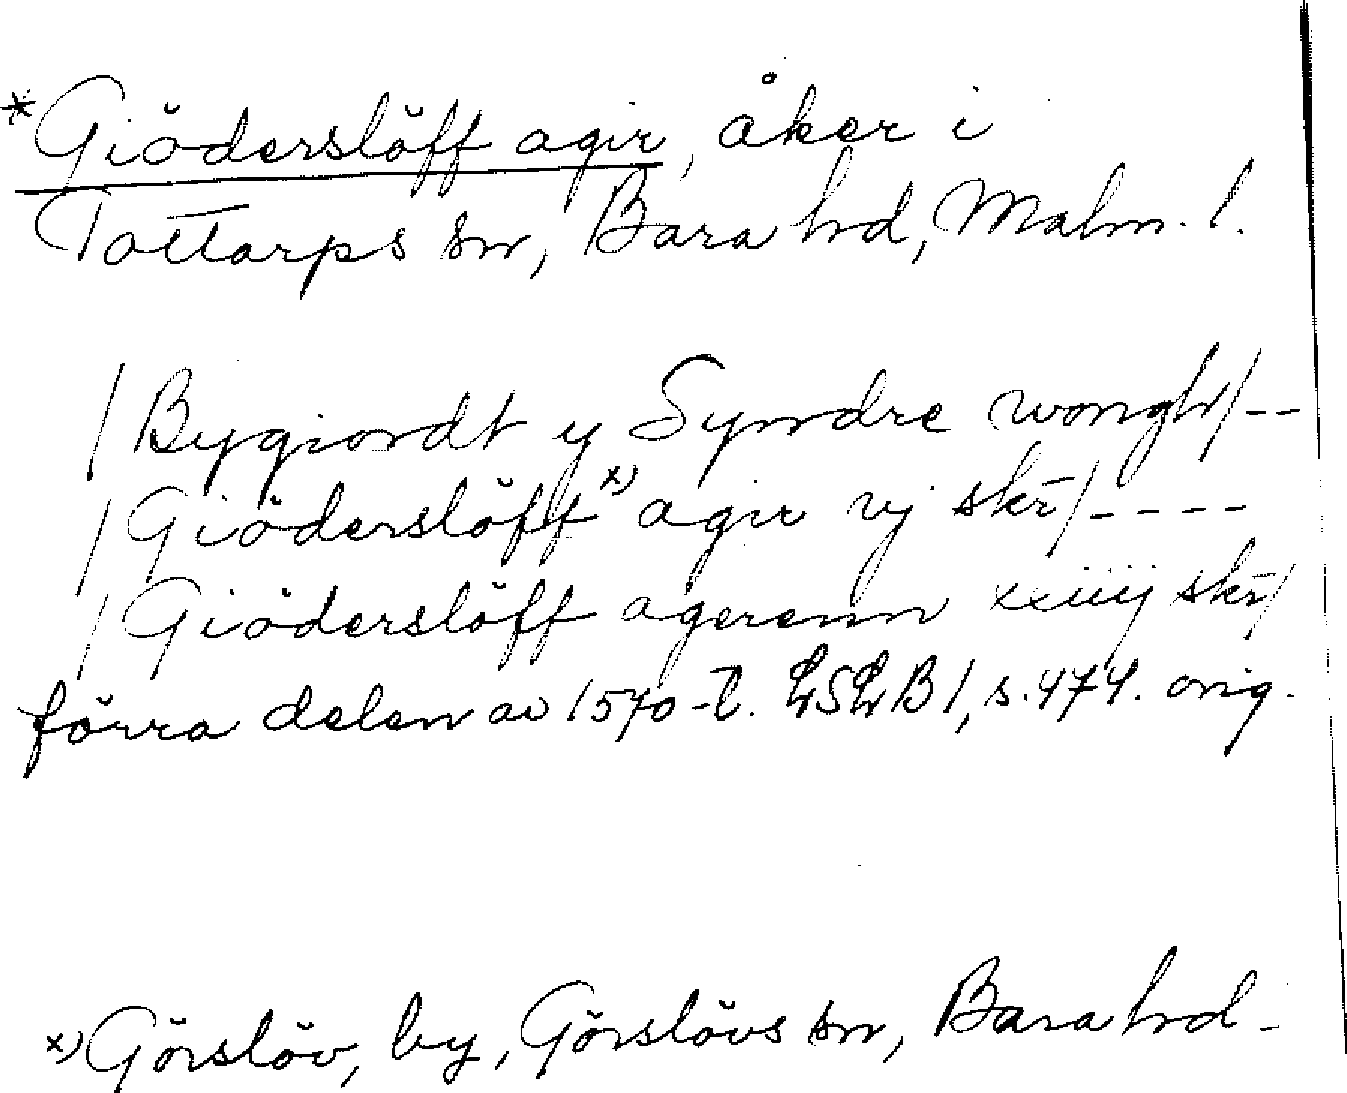 *Giöderslöff agir, åker i
Tottarps sn, Bara hd, Malm. l.
/Bygiordt y Syndre wongh/--
/Giöderslöff x) agir vj skr̄/----
/Giöderslöff agerenn xxiiij skr̄/
förra delen av 1570-t. LSLB 1, s. 474. orig.
x) Görslöv, by, Görslövs sn, Bara hd.